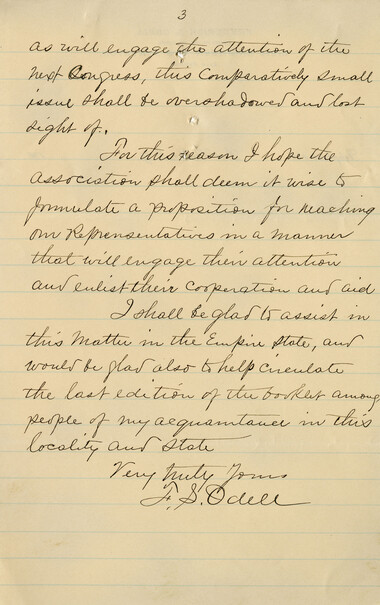 3
as will engage the attention of the
next Congress, this comparatively small
issue shall be overshadowed and lost
sight of.
For this reason I hope the
association shall deem it wise to
formulate a proposition for reaching
our Representatives in a manner
that will engage their attention
and enlist their cooperation and aid
I shall be glad to assist in
this Matter in the Empire State, and
would be glad also to help circulate
the last edition of the booklet among
people of my acquaintance in this
locality and State
Very truly Yours
F. S. Odell